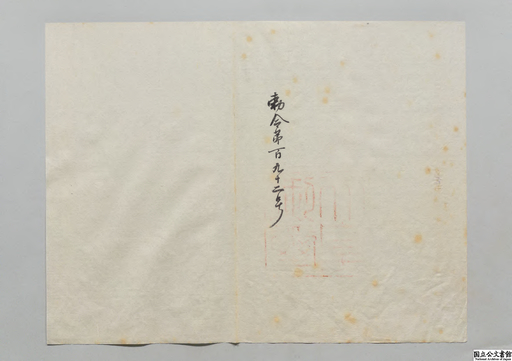 勅令第百九十二号
国立公文書館
National Archives of Japan